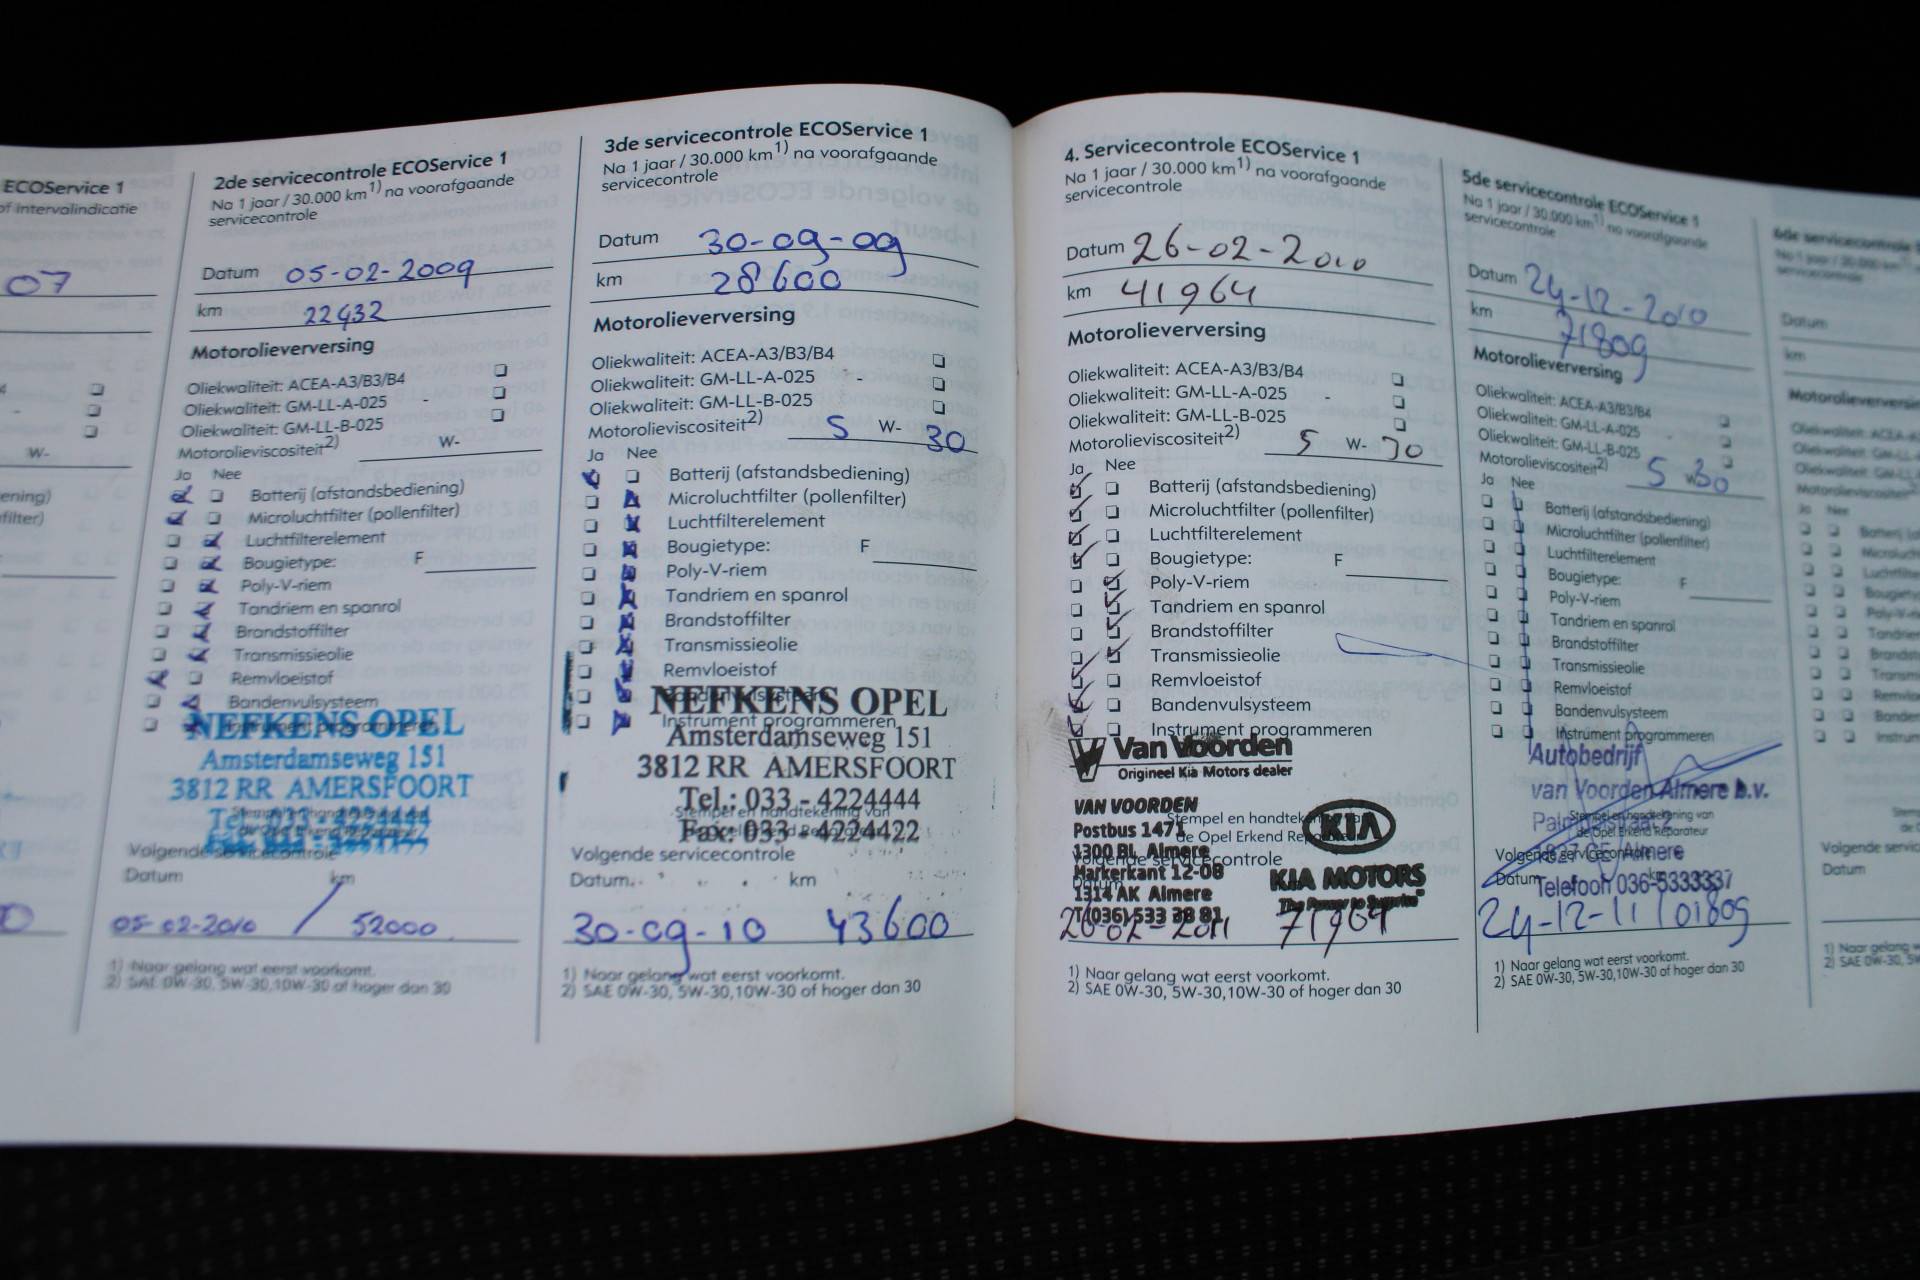 ECOService 1
of Intervalindicatie
07
W-
2de servicecontrole ECOService 1
Na 1 jaar / 30.000 km1) na voorafgaande
servicecontrole
Datum 05-02-2009
km 22932
Motorolieverversing
Oliekwaliteit: ACEA-A3/B3/B4
Oliekwaliteit: GM-LL-A-025 -
Oliekwaliteit: GM-LL-B-025
Motorolieviscositeit2) W-
Ja Nee
Batterij (afstandsbediening)
Microluchtfilter (pollenfilter)
Luchtfilterelement
Bougietype: F
Poly-V-riem
Tandriem en spanrol
Brandstoffilter
Transmissieolie
Remvloeistof
Bandenvulsysteem
NEFKENS OPEL
Amsterdamseweg 151
3812 RR AMERSFOORT
Volgende servicecontrole
Datum km
05-02-2010 / 52000
1) Naar gelang wat eerst voorkomt.
2) SAE 0W-30, 5W-30,10W-30 of hoger dan 30
3de servicecontrole ECOService 1
Na 1 jaar / 30.000 km1) na voorafgaande
servicecontrole
Datum 30-09-09
km 28600
Motorolieverversing
Oliekwaliteit: ACEA-A3/B3/B4
Oliekwaliteit: GM-LL-A-025 -
Oliekwaliteit: GM-LL-B-025
Motorolieviscositeit2) 5 W- 30
Ja Nee
Batterij (afstandsbediening)
Microluchtfilter (pollenfilter)
Luchtfilterelement
Bougietype: F
Poly-V-riem
Tandriem en spanrol
Brandstoffilter
Transmissieolie
Remvloeistof
Bandenvulsysteem
NEFKENS OPEL
Instrument programmeren
Amsterdamseweg 151
3812 RR AMERSFOORT
Tel.: 033 - 4224444
Stempel en handtekening van
Fax: 033 - 4224422
Volgende servicecontrole
Datum km
30-09-10 43600
1) Naar gelang wat eerst voorkomt.
2) SAE 0W-30, 5W-30,10W-30 of hoger dan 30
4. Servicecontrole ECOService 1
Na 1 jaar / 30.000 km1) na voorafgaande
servicecontrole
Datum 26-02-2010
km 41964
Motorolieverversing
Oliekwaliteit: ACEA-A3/B3/B4
Oliekwaliteit: GM-LL-A-025 -
Oliekwaliteit: GM-LL-B-025
Motorolieviscositeit2) 5 W- 30
Ja Nee
Batterij (afstandsbediening)
Microluchtfilter (pollenfilter)
Luchtfilterelement
Bougietype: F
Poly-V-riem
Tandriem en spanrol
Brandstoffilter
Transmissieolie
Remvloeistof
Bandenvulsysteem
Instrument programmeren
Van Voorden
Origineel Kia Motors dealer
VAN VOORDEN
Stempel en handtekening van
Postbus 1471
de Opel Erkend Reparateur
KIA
1300 BL Almere
Volgende servicecontrole
Markerkant 12-08
Datum
1314 AK Almere
KIA MOTORS
The Power to Surprise
T(036) 533 38 81
26-02-2011 71964
1) Naar gelang wat eerst voorkomt.
2) SAE 0W-30, 5W-30,10W-30 of hoger dan 30
5de servicecontrole ECOService 1
Na 1 jaar / 30.000 km1) na voorafgaande
servicecontrole
Datum 24-12-2010
km 71809
Motorolieverversing
Oliekwaliteit: ACEA-A3/B3/B4
Oliekwaliteit: GM-LL-A-025 -
Oliekwaliteit: GM-LL-B-025
Motorolieviscositeit2) 5 W 30
Ja Nee
Batterij (afstandsbediening)
Microluchtfilter (pollenfilter)
Luchtfilterelement
Bougietype: F
Poly-V-riem
Tandriem en spanrol
Brandstoffilter
Transmissieolie
Remvloeistof
Bandenvulsysteem
Instrument programmeren
Autobedrijf
van Voorden Almere b.v.
Stempel en handtekening van
de Opel Erkend Reparateur
Volgende servicecontrole
Almere
Datum
Telefoon 036-5333337
24-12-11 / 101809
1) Naar gelang wat eerst voorkomt.
2) SAE 0W-30, 5W-30,10W-30 of hoger dan 30
Datum
km
Ja Nee
Volgende
Datum